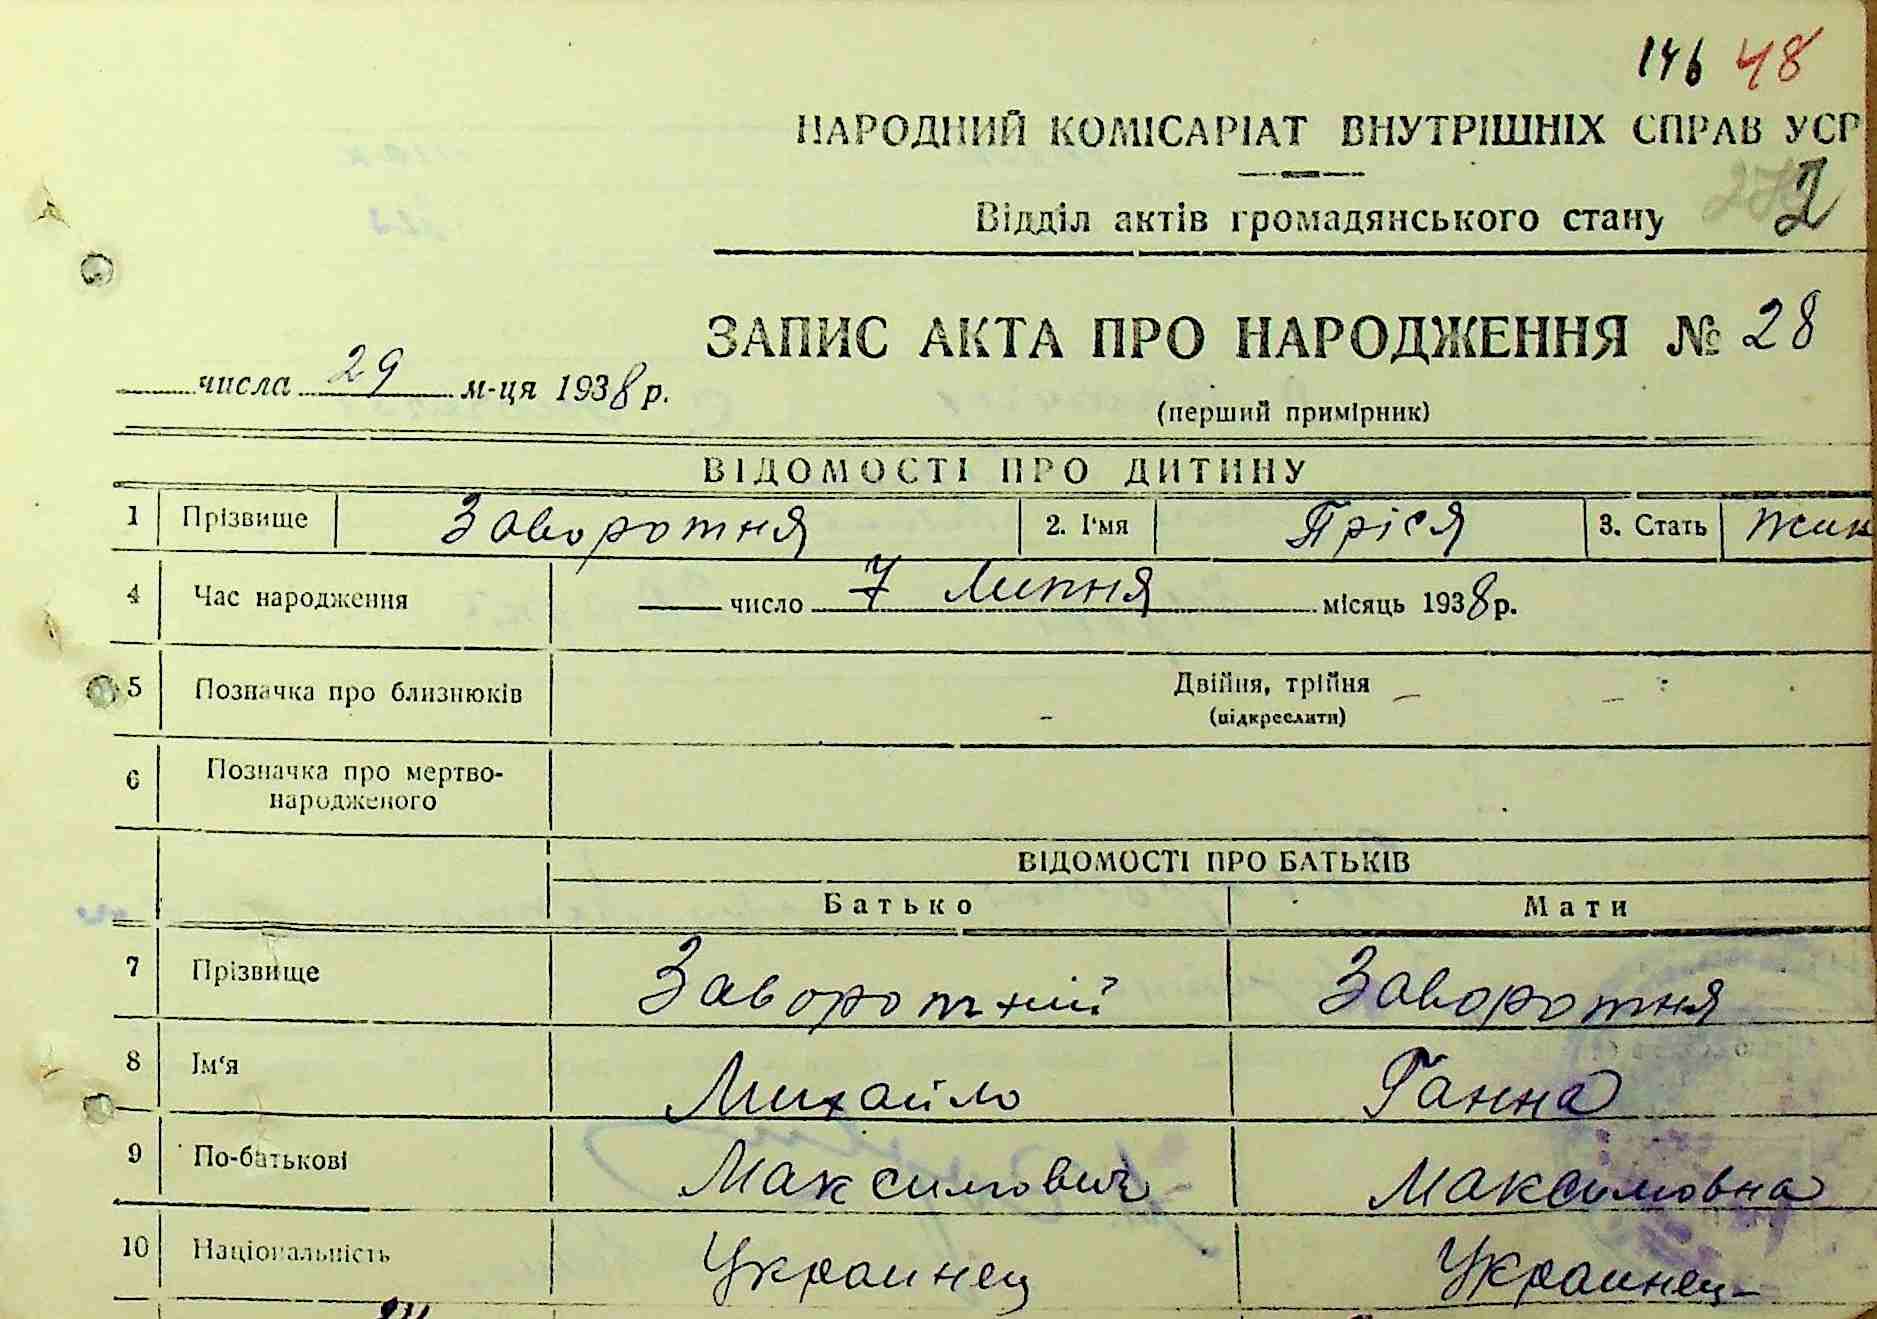 146 48
НАРОДНИЙ КОМІСАРІАТ ВНУТРІШНІХ СПРАВ УСР
2
Відділ актів громадянського стану
ЗАПИС АКТА ПРО НАРОДЖЕННЯ № 28
числа 29 м-ця 1938 р.
(перший примірник)
ВІДОМОСТІ ПРО ДИТИНУ
1 Прізвище Заворотня 2. І'мя Пріся 3. Стать жин
4 Час народження число 7 Липня місяць 1938 р.
5 Позначка про близнюків Двійня, трійня
(підкреслити)
6 Позначка про мертво-
народженого
ВІДОМОСТІ ПРО БАТЬКІВ
Батько Мати
7 Прізвище Заворотній Заворотня
8 Ім'я Михайло Ганна
9 По-батькові Максимович Максимовна
10 Національність Украинец Украинец